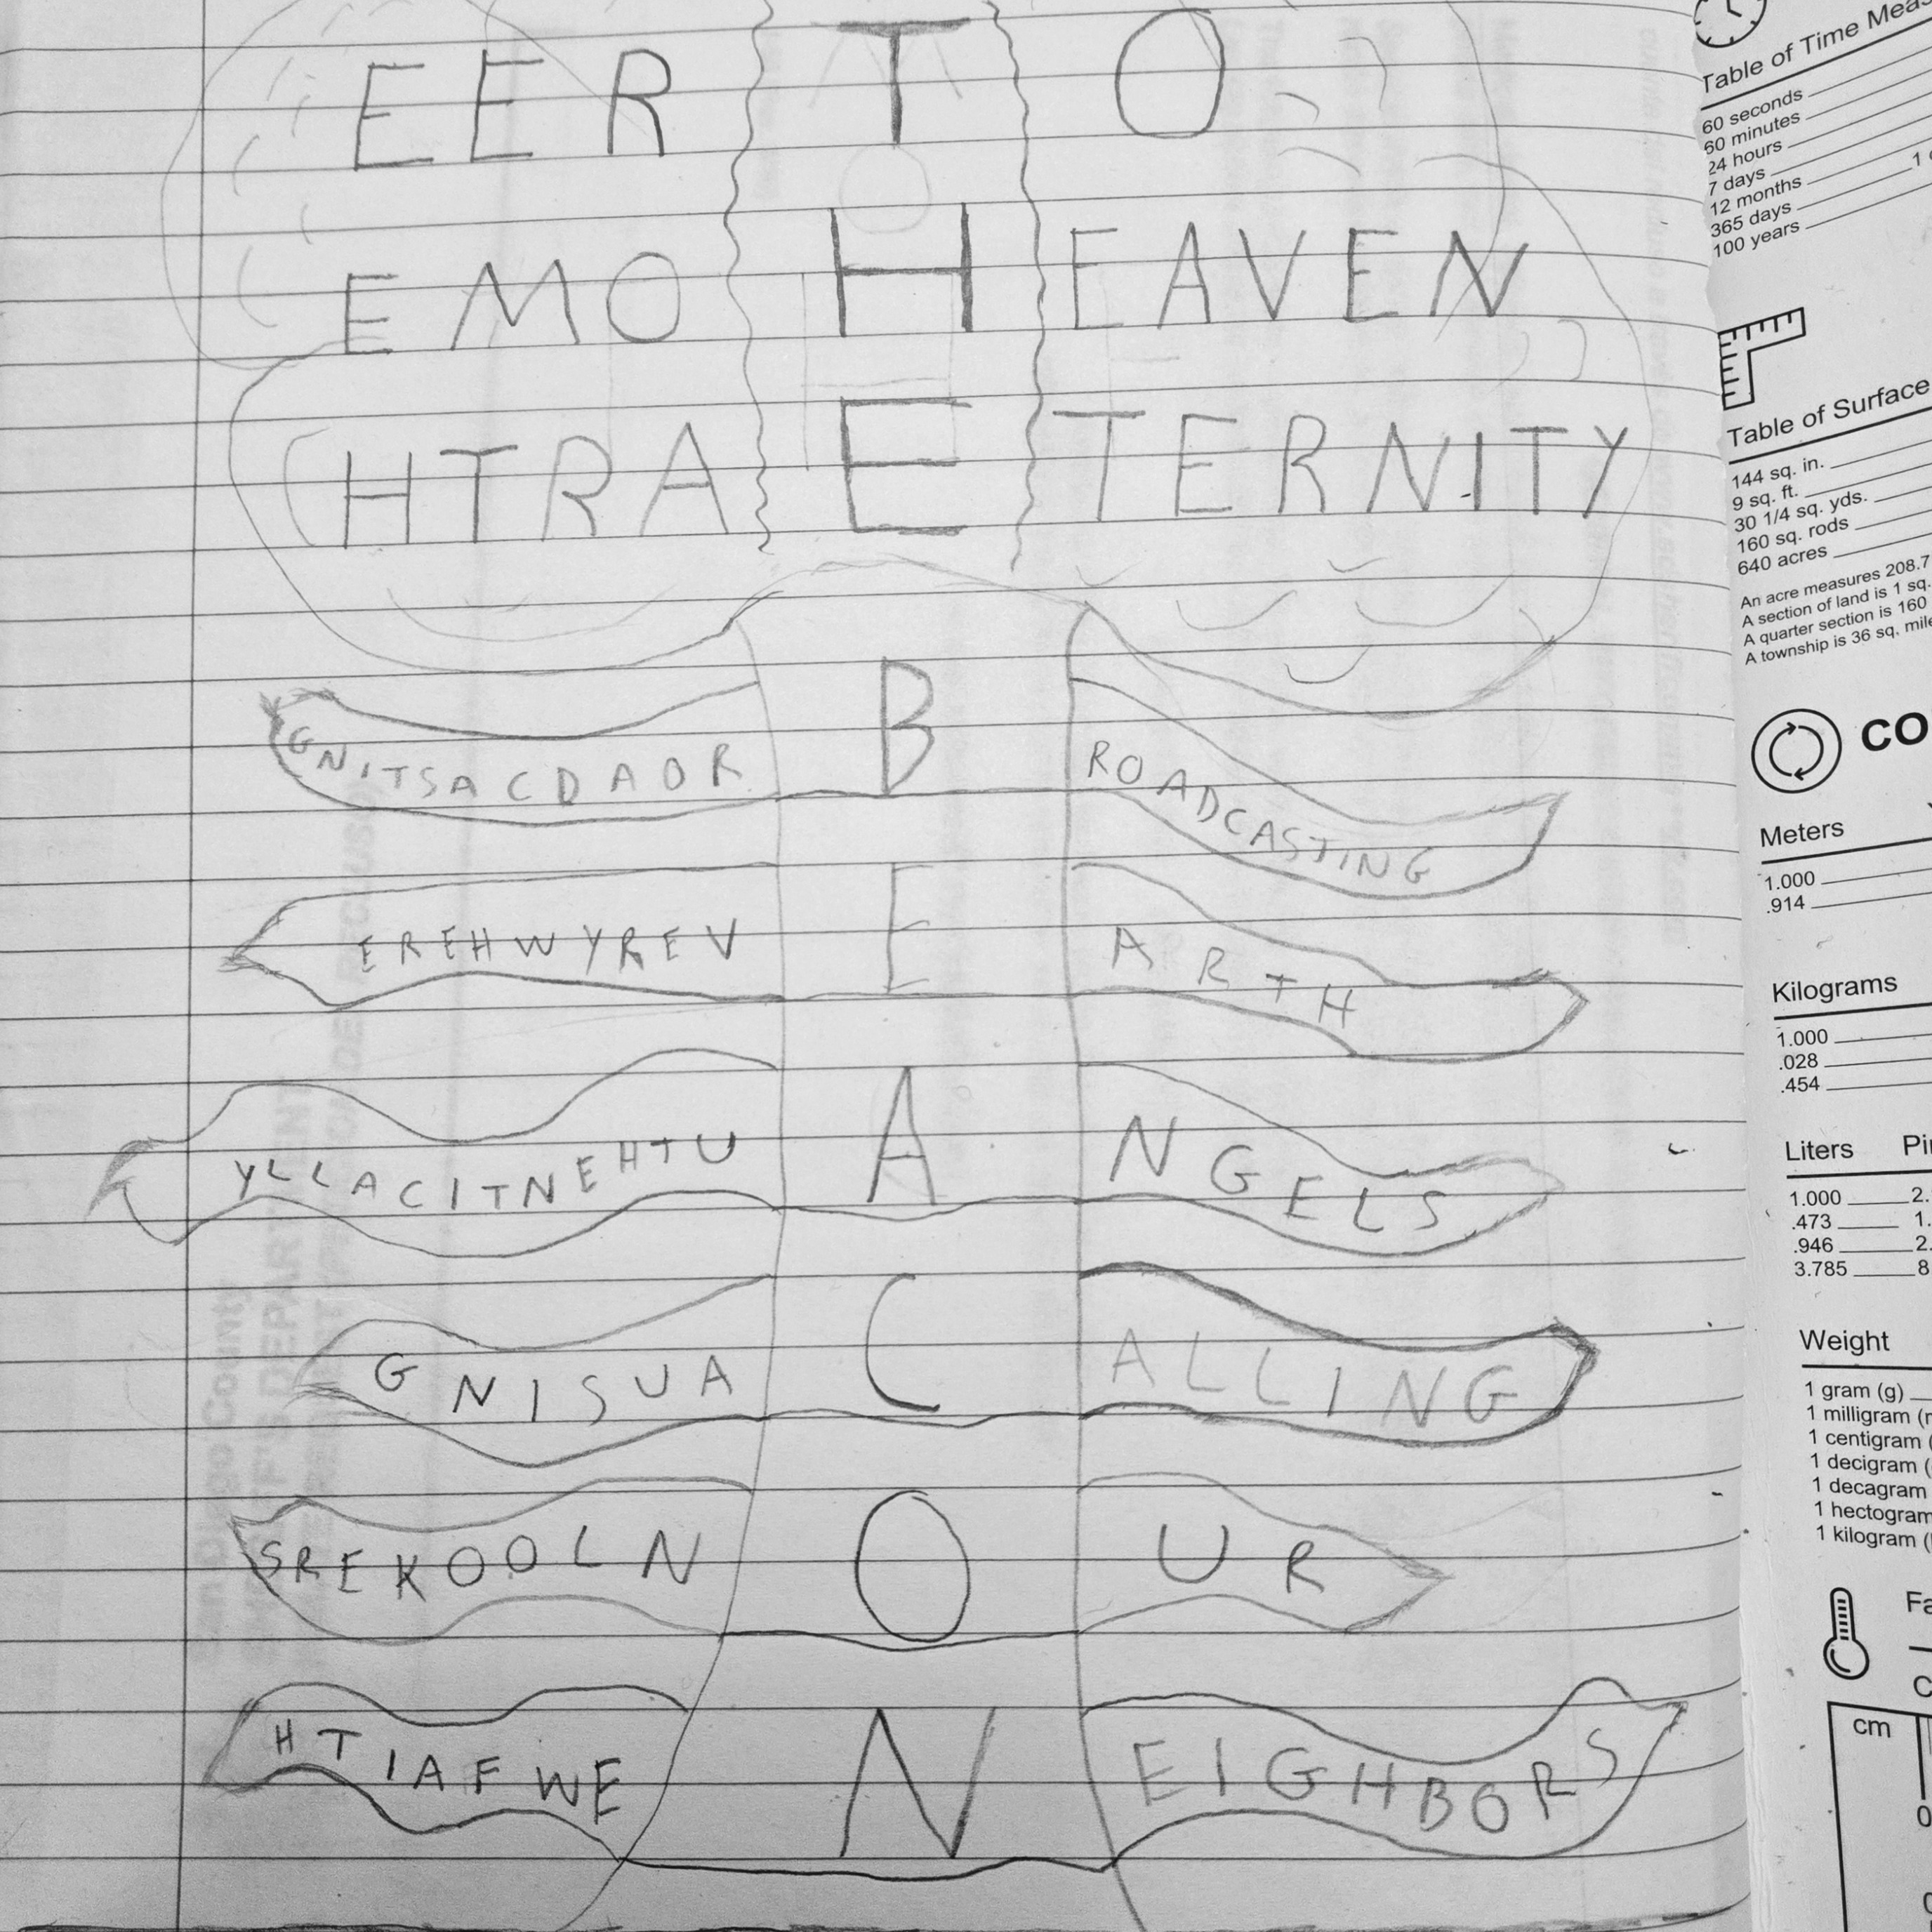 EER T O
EMO H EAVEN
HTRA E TERNITY
GNITSACDAOR B ROADCASTING
EREHWYREV E ARTH
YLLACITNEHTU A NGELS
GNISUA C ALLING
SREKOOLN O UR
HTIAFWE N EIGHBORS
Table of Time
60 seconds
60 minutes
24 hours
7 days
12 months
365 days
100 years
Table of Surface
144 sq. in.
9 sq. ft.
30 1/4 sq. yds.
160 sq. rods
640 acres
An acre measures 208.7
A section of land is 1 sq.
A quarter section is 160
A township is 36 sq.
Meters
1.000
.914
Kilograms
1.000
.028
.454
Liters
1.000 2.
.473 1.
.946 2.
3.785 8
Weight
1 gram (g)
1 milligram
1 centigram
1 decigram
1 decagram
1 hectogram
1 kilogram
cm
0